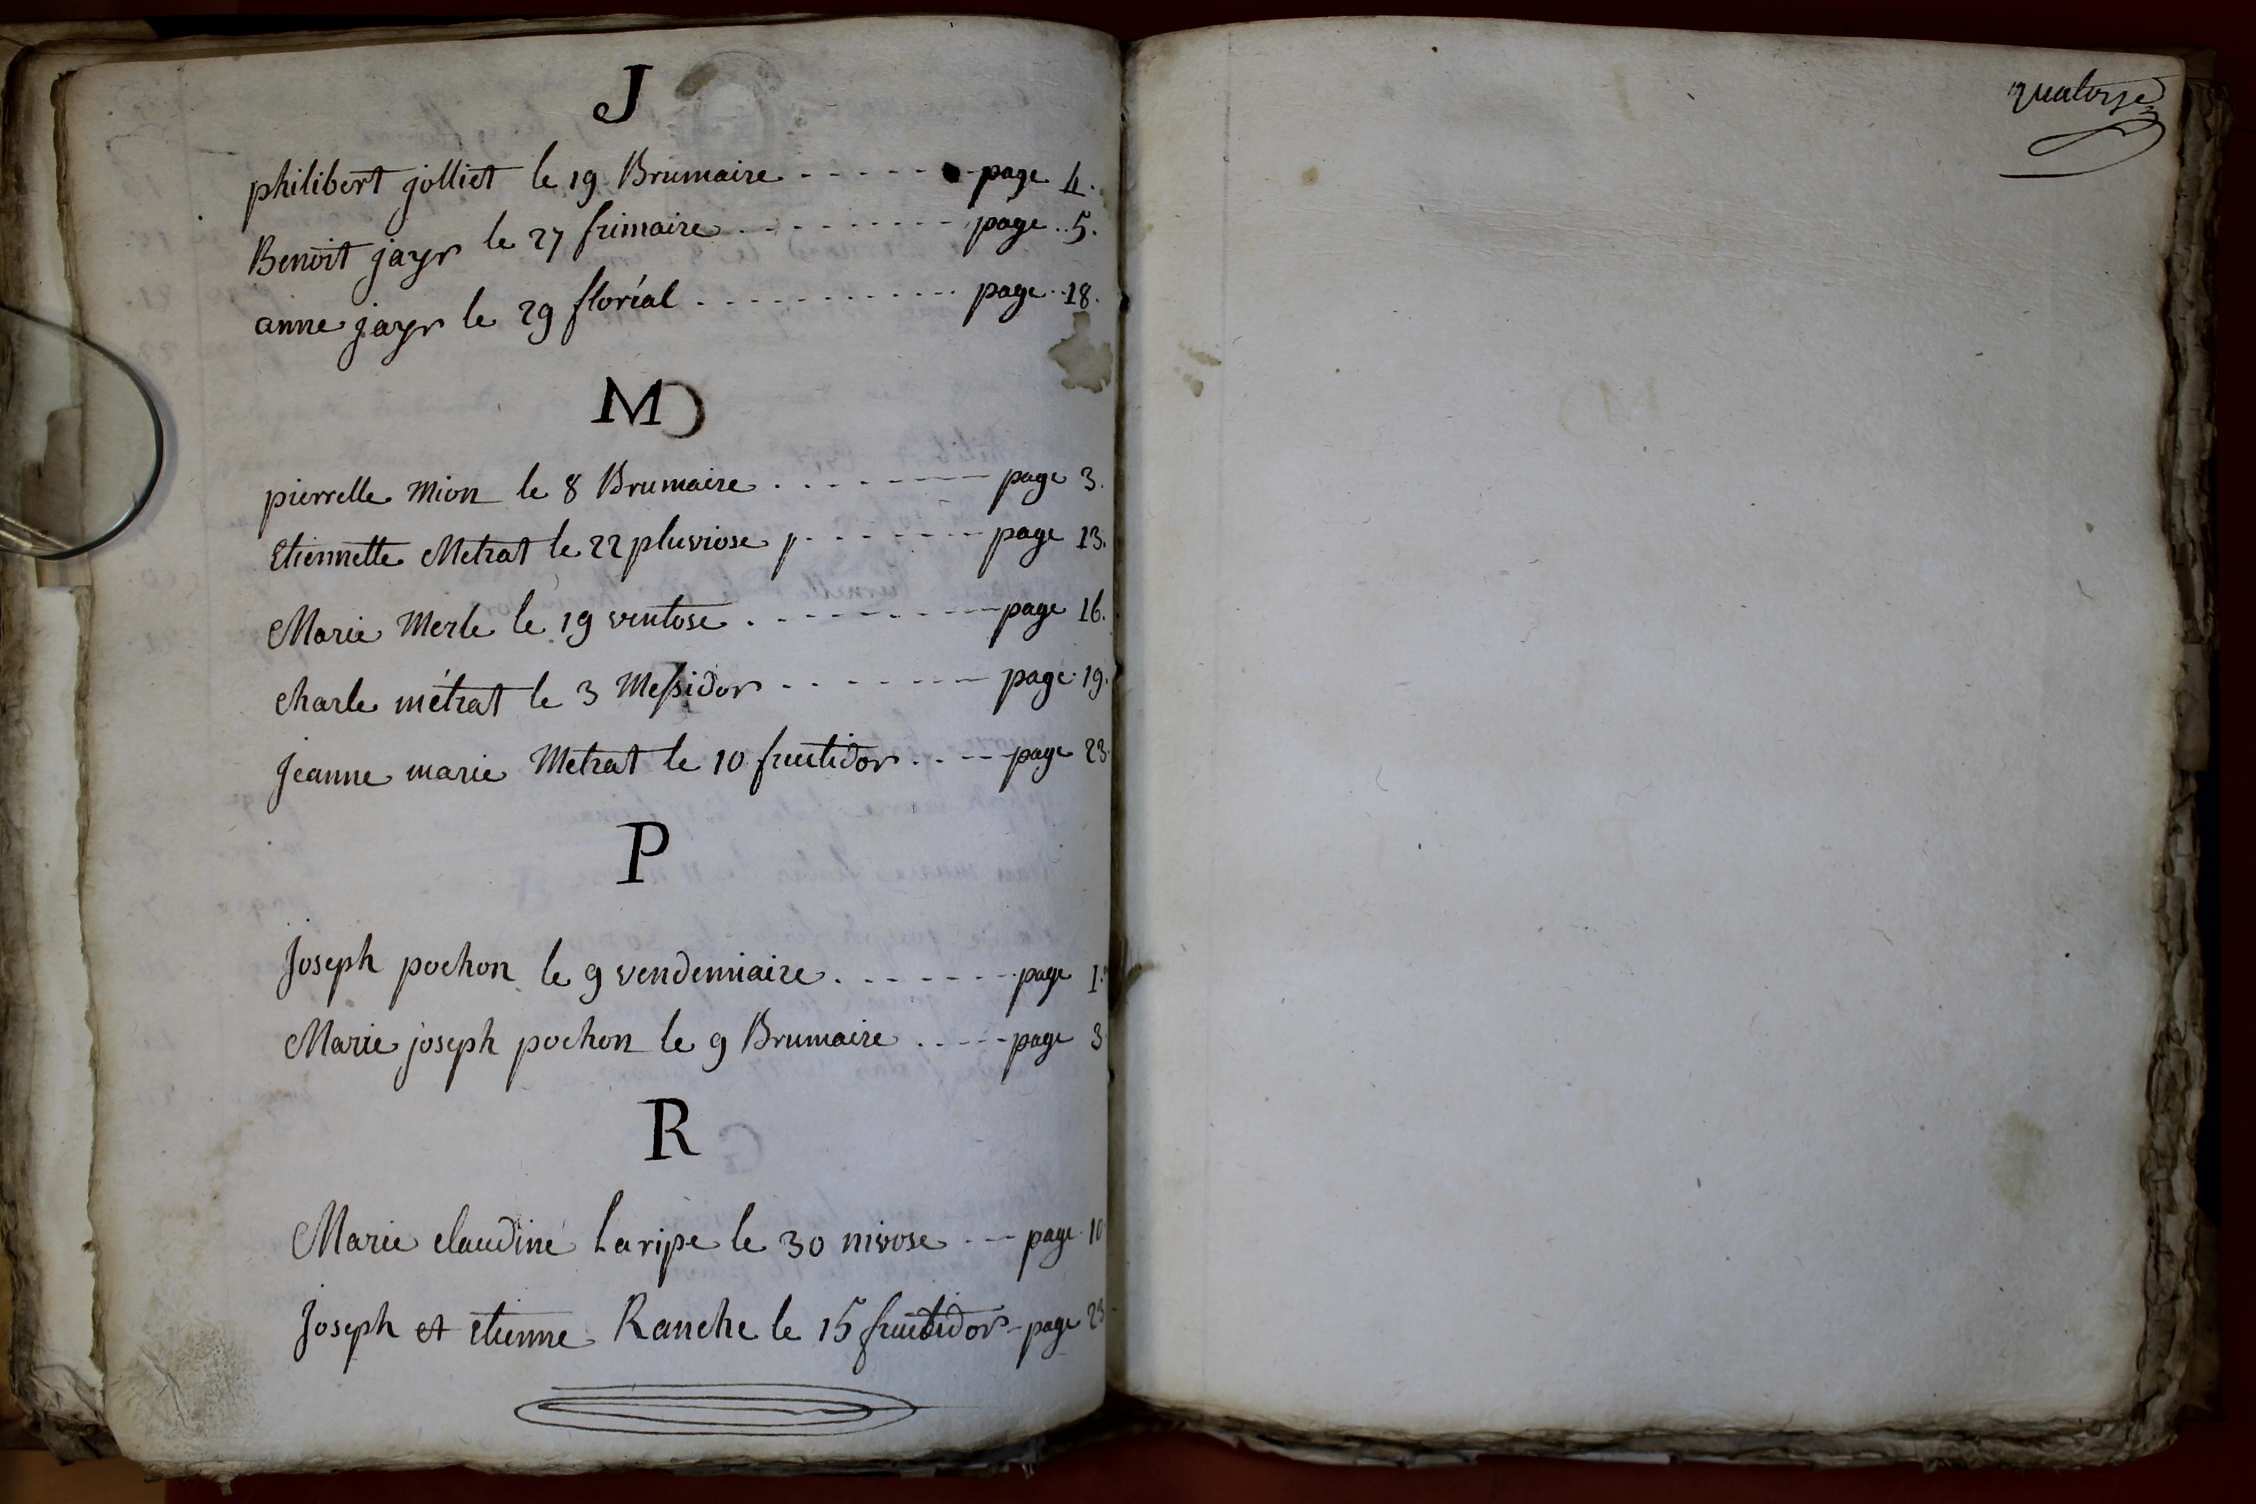 J
philibert jolliet le 19 Brumaire - - - - - - - page 4.
Benoit jayr le 27 frimaire - - - - - - - - - - page . 5.
anne jayr le 29 floréal - - - - - - - - - - - page . 18.
M
pierrette Mion le 8 Brumaire - - - - - - - page 3.
Etiennette Metrat le 22 pluviose p - - - - - - page 13.
Marie Merle le 19 ventose - - - - - - - - page 16.
charle métrat le 3 Messidor - - - - - - - page 19.
jeanne marie Metrat le 10 fructidor - - - - page 23.
P
Joseph pochon le 9 vendemiaire - - - - - - - page 1.
Marie joseph pochon le 9 Brumaire - - - - - page 3
R
Marie claudine Laripe le 30 nivose - - - page 10
Joseph et etienne Ranche le 15 fructidor - page 23
quatorze